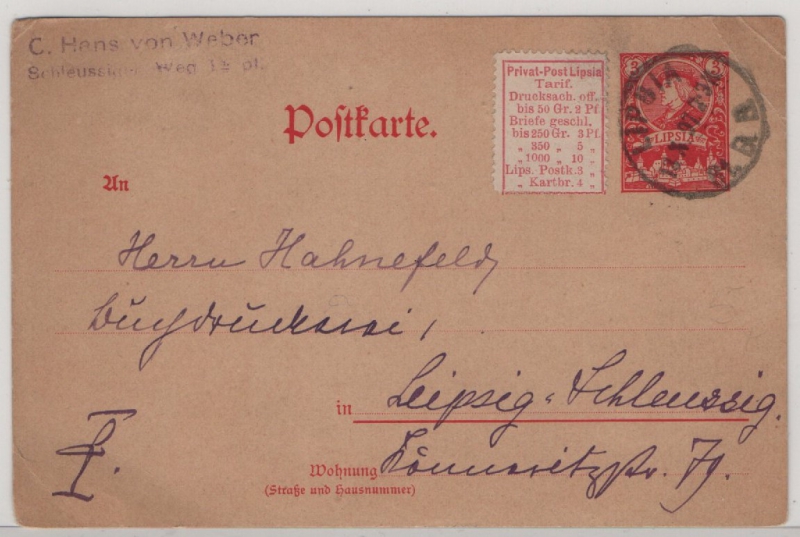 C. Hans von Weber
Schleussiger Weg
Privat-Post Lipsia
Tarif.
Drucksach. off.
bis 50 Gr. 2 Pf.
Briefe geschl.
bis 250 Gr. 3 Pf.
„ 350 „ 5 „
„ 1000 „ 10 „
Lips. Postk. 3 „
„ Kartbr. 4 „
3 3
LIPSIA
LIPSIA
Postkarte.
An
Herrn Hahnefeld,
Buchdruckerei,
in Leipzig-Schleussig.
I.
Wohnung Könneritzstr. 79.
(Straße und Hausnummer)